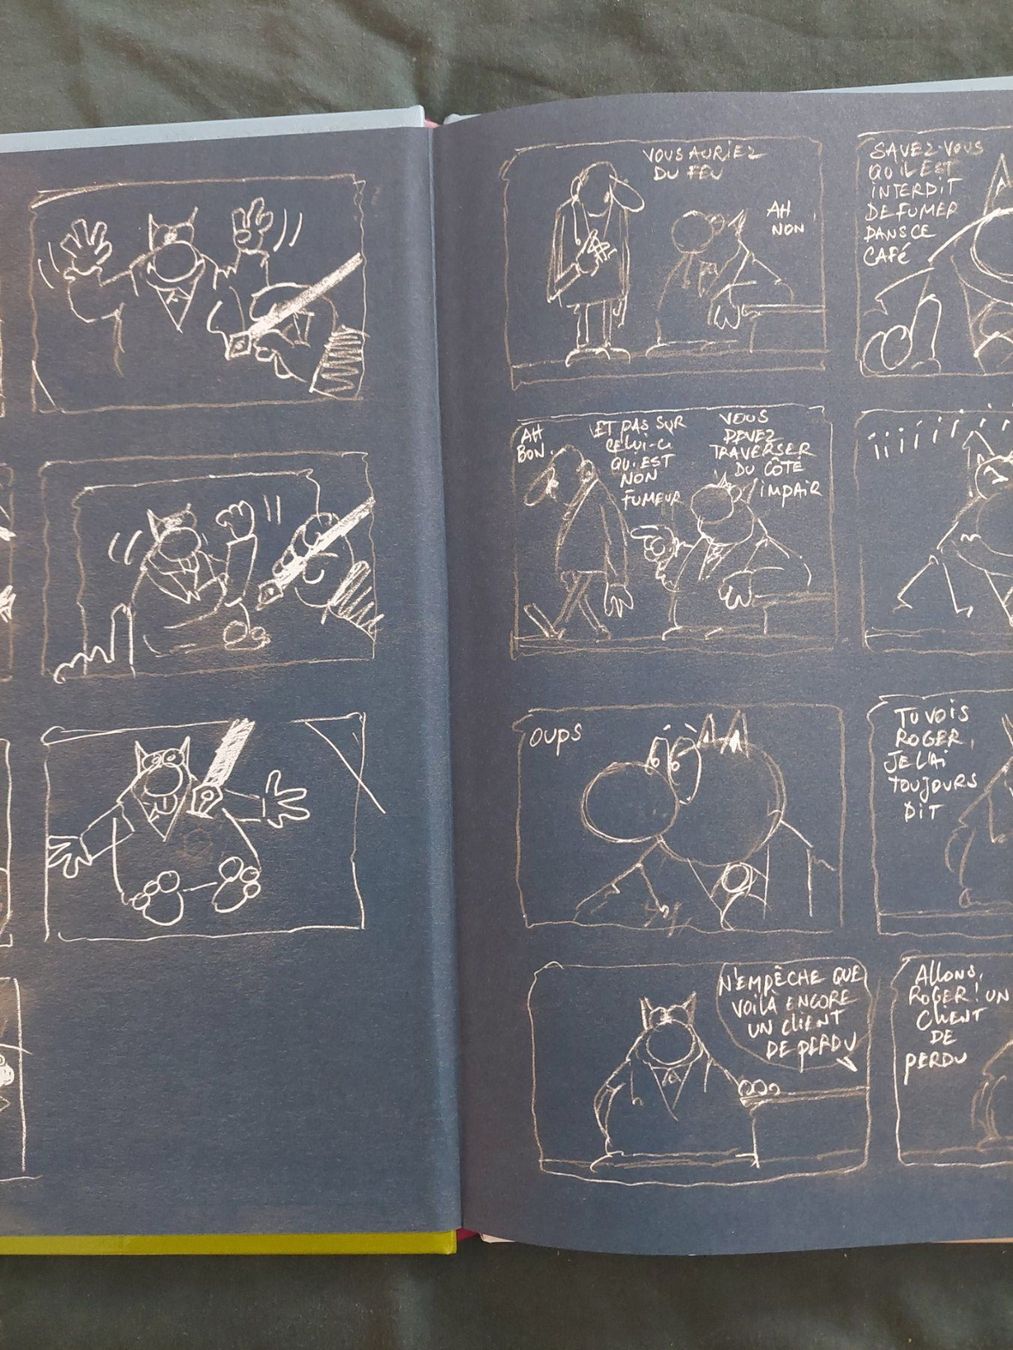 VOUS AURIEZ
DU FEU
AH
NON
SAVEZ-VOUS
QU'IL EST
INTERDIT
DE FUMER
DANS CE
CAFÉ
AH
BON
ET PAS SUR
CELUI-CI
QUI EST
NON
FUMEUR
VOUS
DEVEZ
TRAVERSER
DU CÔTÉ
IMPAIR
OUPS
TU VOIS
ROGER,
JE L'AI
TOUJOURS
DIT
N'EMPÊCHE QUE
VOILÀ ENCORE
UN CLIENT
DE PERDU
ALLONS,
ROGER! UN
CLIENT
DE
PERDU